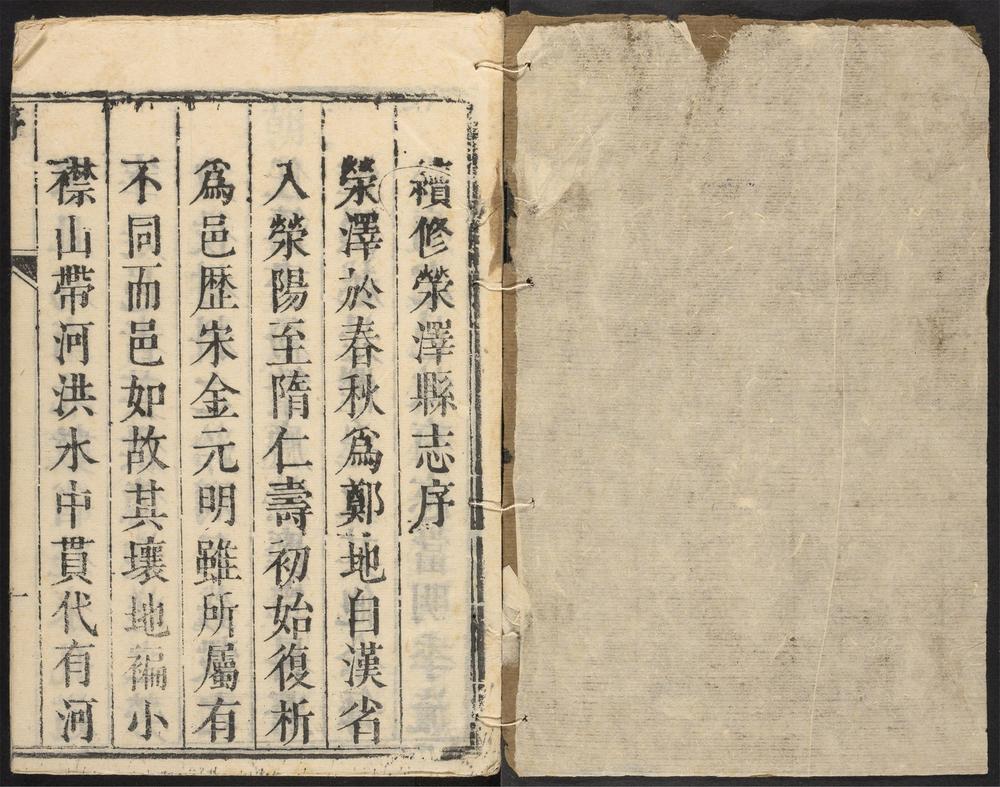 續修滎澤縣志序
滎澤於春秋爲鄭地自漢省
入滎陽至隋仁壽初始復析
爲邑歴宋金元明雖所屬有
不同而邑如故其壤地褊小
襟山帶河洪水中貫代有河
序
一